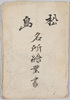 松島
名所繪葉書